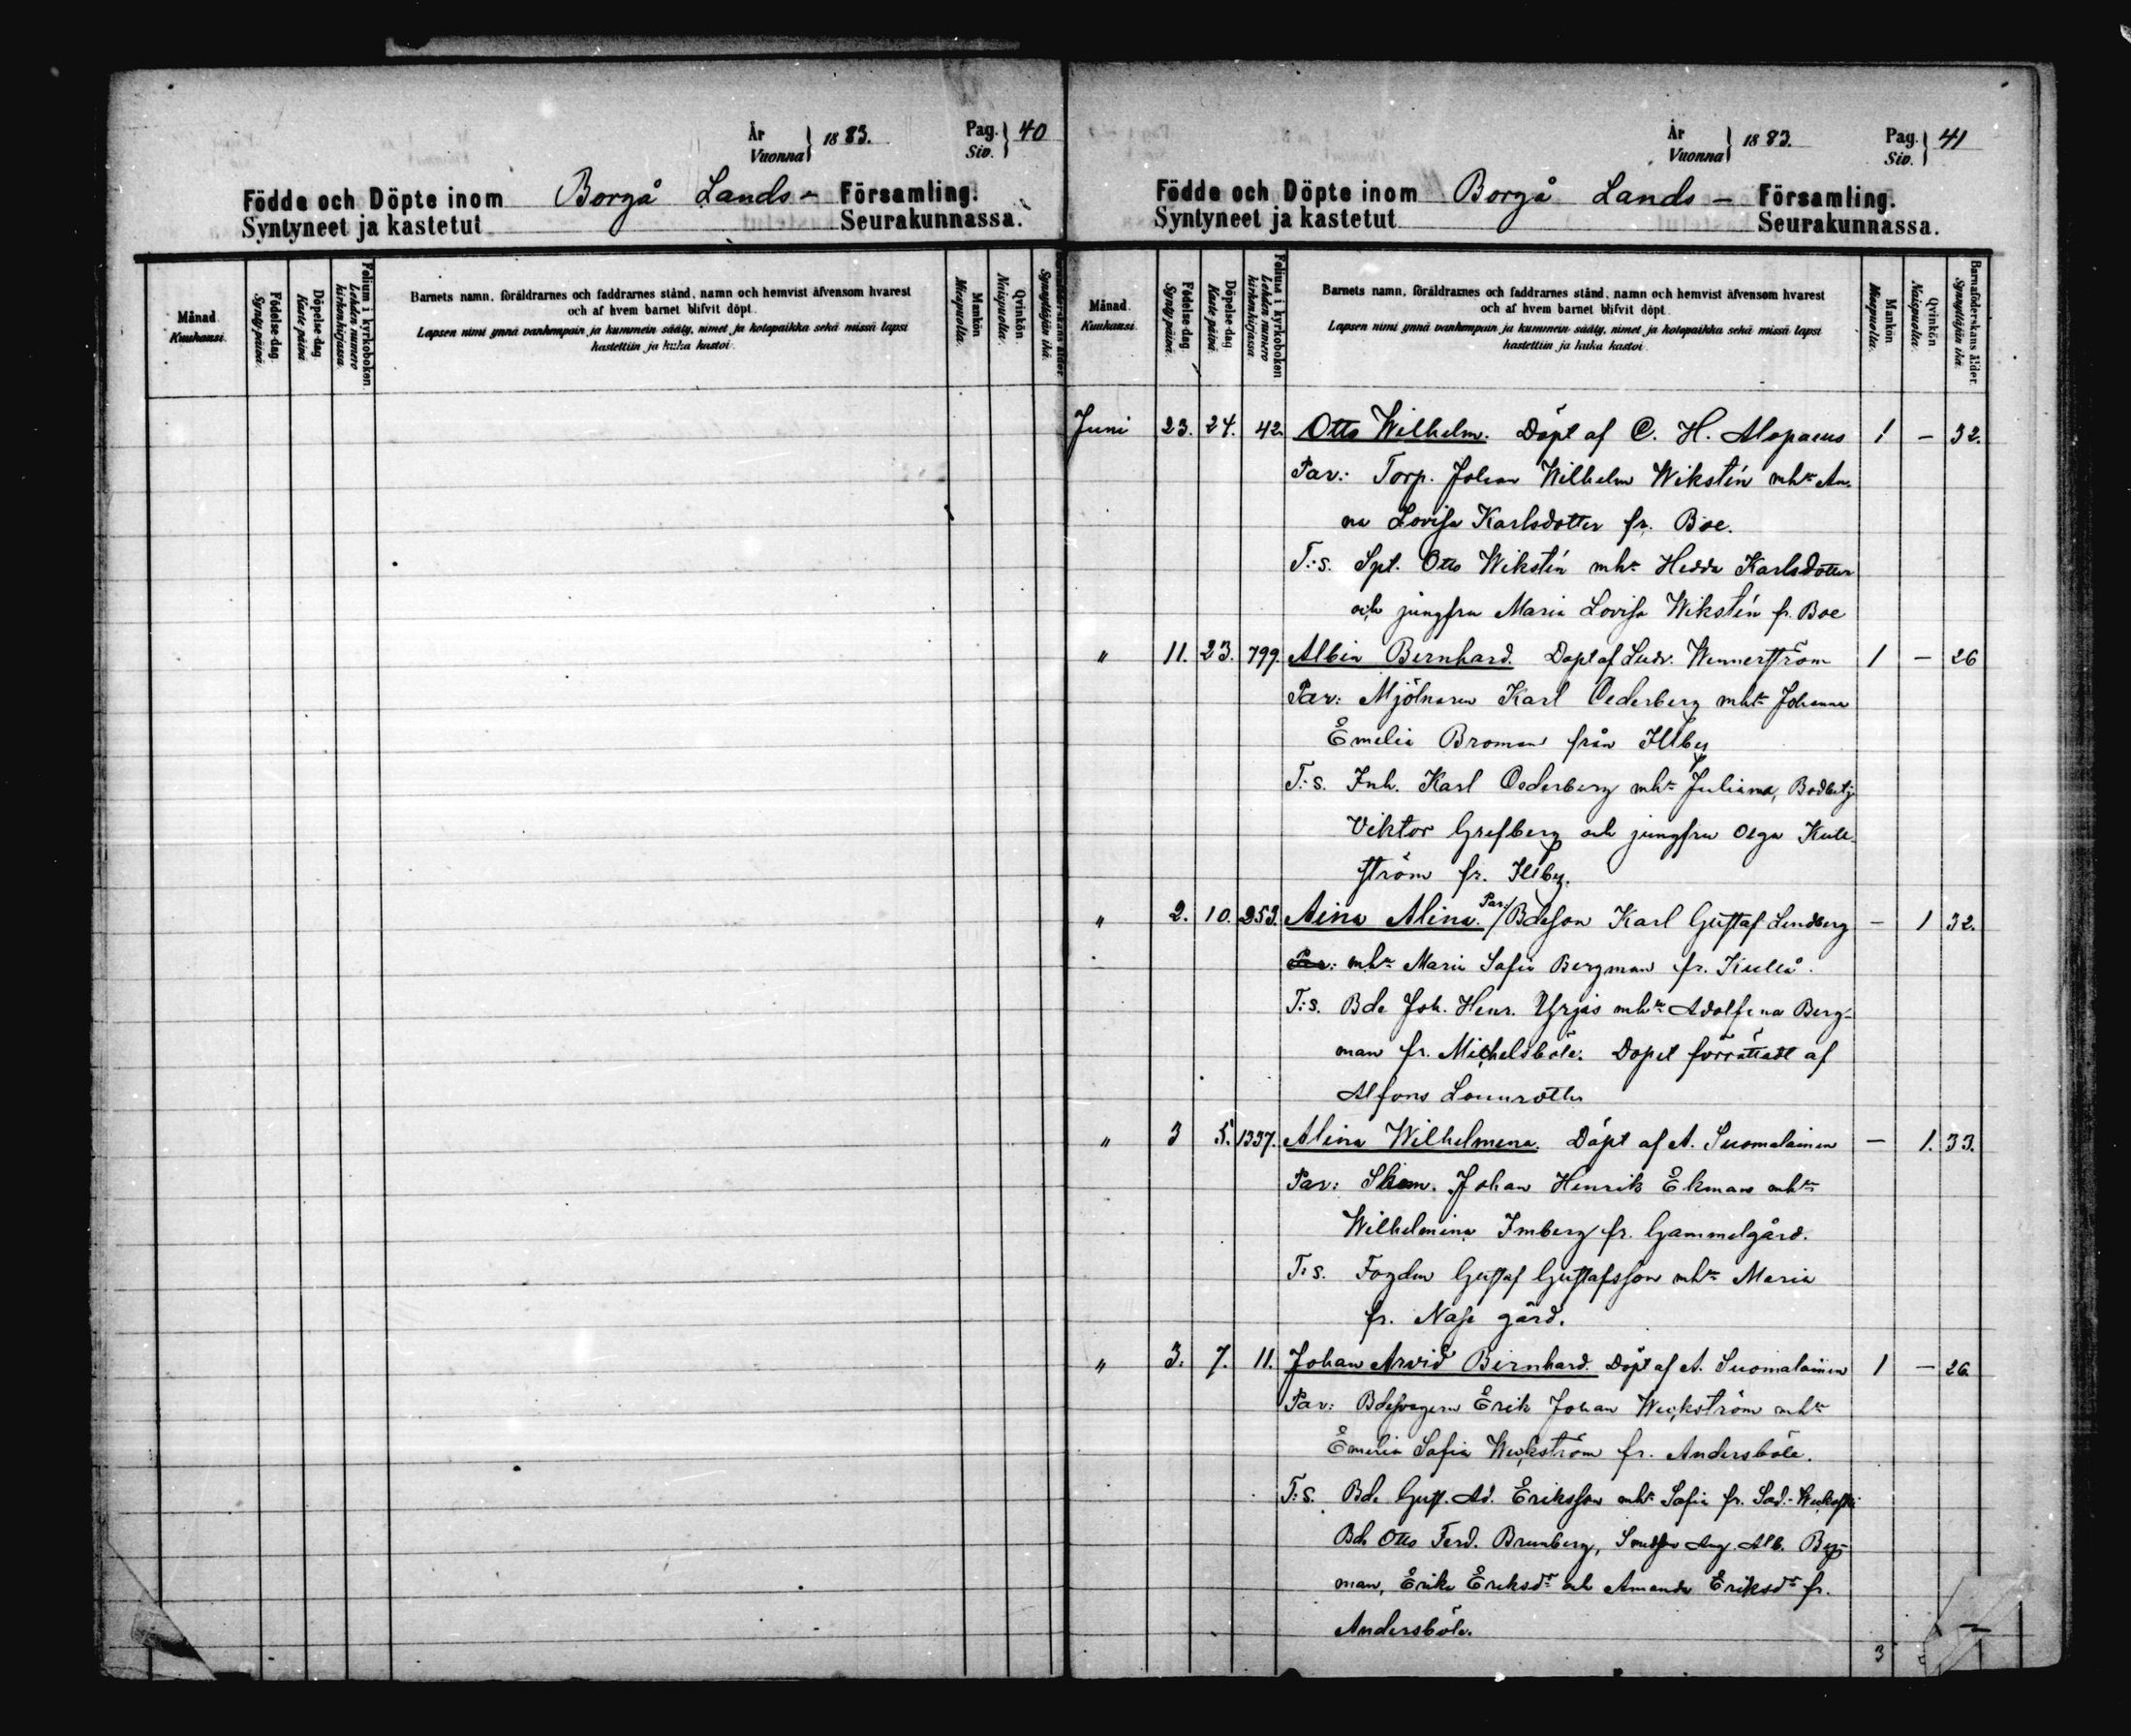 År
Vuonna } 1883.
Pag.
Siv. } 40
Födde och Döpte inom Borgå Lands- Församling.
Syntyneet ja kastetut Seurakunnassa.
Månad.
Kuukausi.
Födelse-dag.
Synty-päivä.
Döpelse-dag
Kaste-päivä.
Folium i kyrkoboken
Lehden numero
kirkonkirjassa.
Barnets namn, föräldrarnes och faddrarnes stånd, namn och hemvist äfvensom hvarest
och af hvem barnet blifvit döpt.
Lapsen nimi ynnä vanhempain ja kummein sääty, nimet ja kotopaikka sekä missä lapsi
kastettiin ja kuka kastoi.
Mankön
Miespuolta.
Qvinkön
Naispuolta.
Barnaföderskans ålder.
Synnyttäjän ikä.
År
Vuonna } 1883.
Pag.
Siv. } 41
Födde och Döpte inom Borgå Lands- Församling.
Syntyneet ja kastetut Seurakunnassa.
Månad.
Kuukausi.
Födelse-dag.
Synty-päivä.
Döpelse-dag
Kaste-päivä.
Folium i kyrkoboken
Lehden numero
kirkonkirjassa.
Barnets namn, föräldrarnes och faddrarnes stånd, namn och hemvist äfvensom hvarest
och af hvem barnet blifvit döpt.
Lapsen nimi ynnä vanhempain ja kummein sääty, nimet ja kotopaikka sekä missä lapsi
kastettiin ja kuka kastoi.
Mankön
Miespuolta.
Qvinkön
Naispuolta.
Barnaföderskans ålder.
Synnyttäjän ikä.
Juni 23. 24. 42. Otto Wilhelm. Döpt af C. H. Alopaeus 1 - 32.
Par: Torp. Johan Wilhelm Wikstén mhr An-
na Lovisa Karlsdotter fr. Boe.
T:s. Spt. Otto Wikstén mhr Hedda Karlsdotter
och jungfru Maria Lovisa Wikstén fr. Boe
" 11. 23. 799. Albin Bernhard. Döpt af Ludv. Wennerström 1 - 26
Par: Mjölnaren Karl Cederberg mhr Johanna
Emelia Broman från Illby
T:s. Inh. Karl Cederberg mhr Juliana,
Viktor Grefberg och jungfru Olga Kull-
ström fr. Illby.
" 2. 10. 253. Aina Alina. Par: Bdeson Karl Gustaf Lindberg - 1 32.
Par: mhr Maria Sofia Bergman fr. Kullå.
T:s. Bde Joh. Henr. Yrjas mhr Adolfina Berg-
man fr. Mickelsböle. Dopet förrättadt af
Alfons
" 3 5. 1337. Alina Wilhelmina. Döpt af A. Suomalainen - 1. 33.
Par: Johan Henrik Ekman mhr
Wilhelmina Imberg fr. Gammelgård.
T:s. Fogden Gustaf Gustafsson mhr Maria
fr. Nase gård.
" 3. 7. 11. Johan Arvid Bernhard. Döpt af A. Suomalainen 1 - 26.
Par: Bdesvågern Erik Johan Weckström mhr
Emelia Sofia Weckström fr. Andersböle.
T:s. Bde Gust. Ad. Eriksson mhr Sofia fr.
Bde Otto Ferd. Brunberg, Aug. Alb. Berg-
man, Erika Eriksdr och Amanda Eriksdr fr.
Andersböle.
3